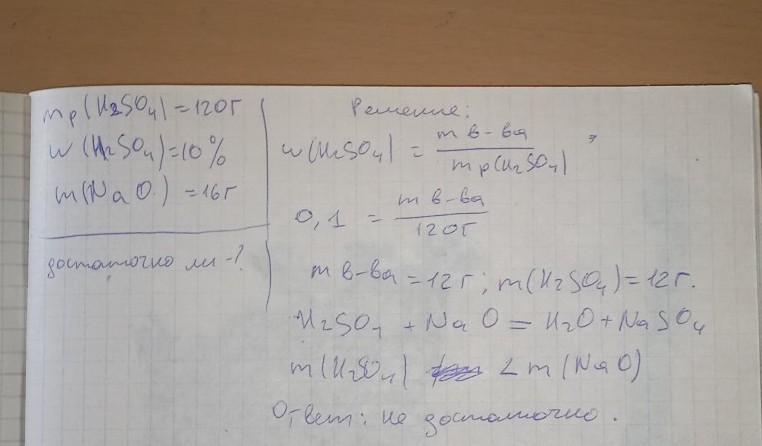 mр(H2SO4) = 120г
w(H2SO4) = 10%
m(NaO) = 16г
достаточно ли -?
Решение:
w(H2SO4) = m в-ва / mр(H2SO4) ,
0,1 = m в-ва / 120г
m в-ва = 12г; m(H2SO4) = 12г.
H2SO4 + NaO = H2O + NaSO4
m(H2SO4) < m(NaO)
Ответ: не достаточно.